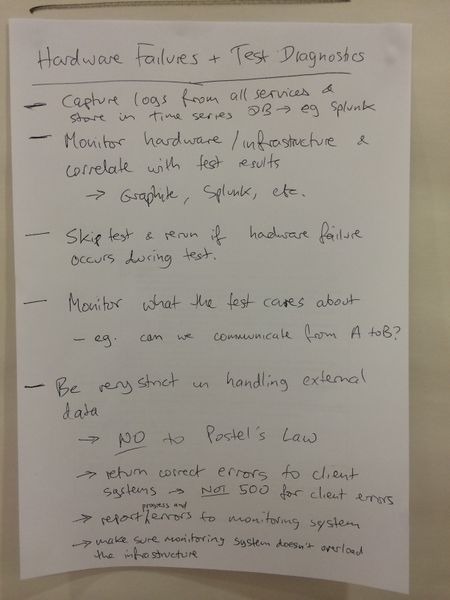 Hardware Failures + Test Diagnostics
— Capture logs from all services &
store in time series DB → eg Splunk
— Monitor hardware / infrastructure &
correlate with test results
→ Graphite, Splunk, etc.
— Skip test & rerun if hardware failure
occurs during test.
— Monitor what the test cares about
- eg. can we communicate from A to B?
— Be very strict in handling external
data
→ NO to Postel's Law
→ return correct errors to client
systems → NOT 500 for client errors
→ report progress and / errors to monitoring system
→ make sure monitoring system doesn't overload
the infrastructure